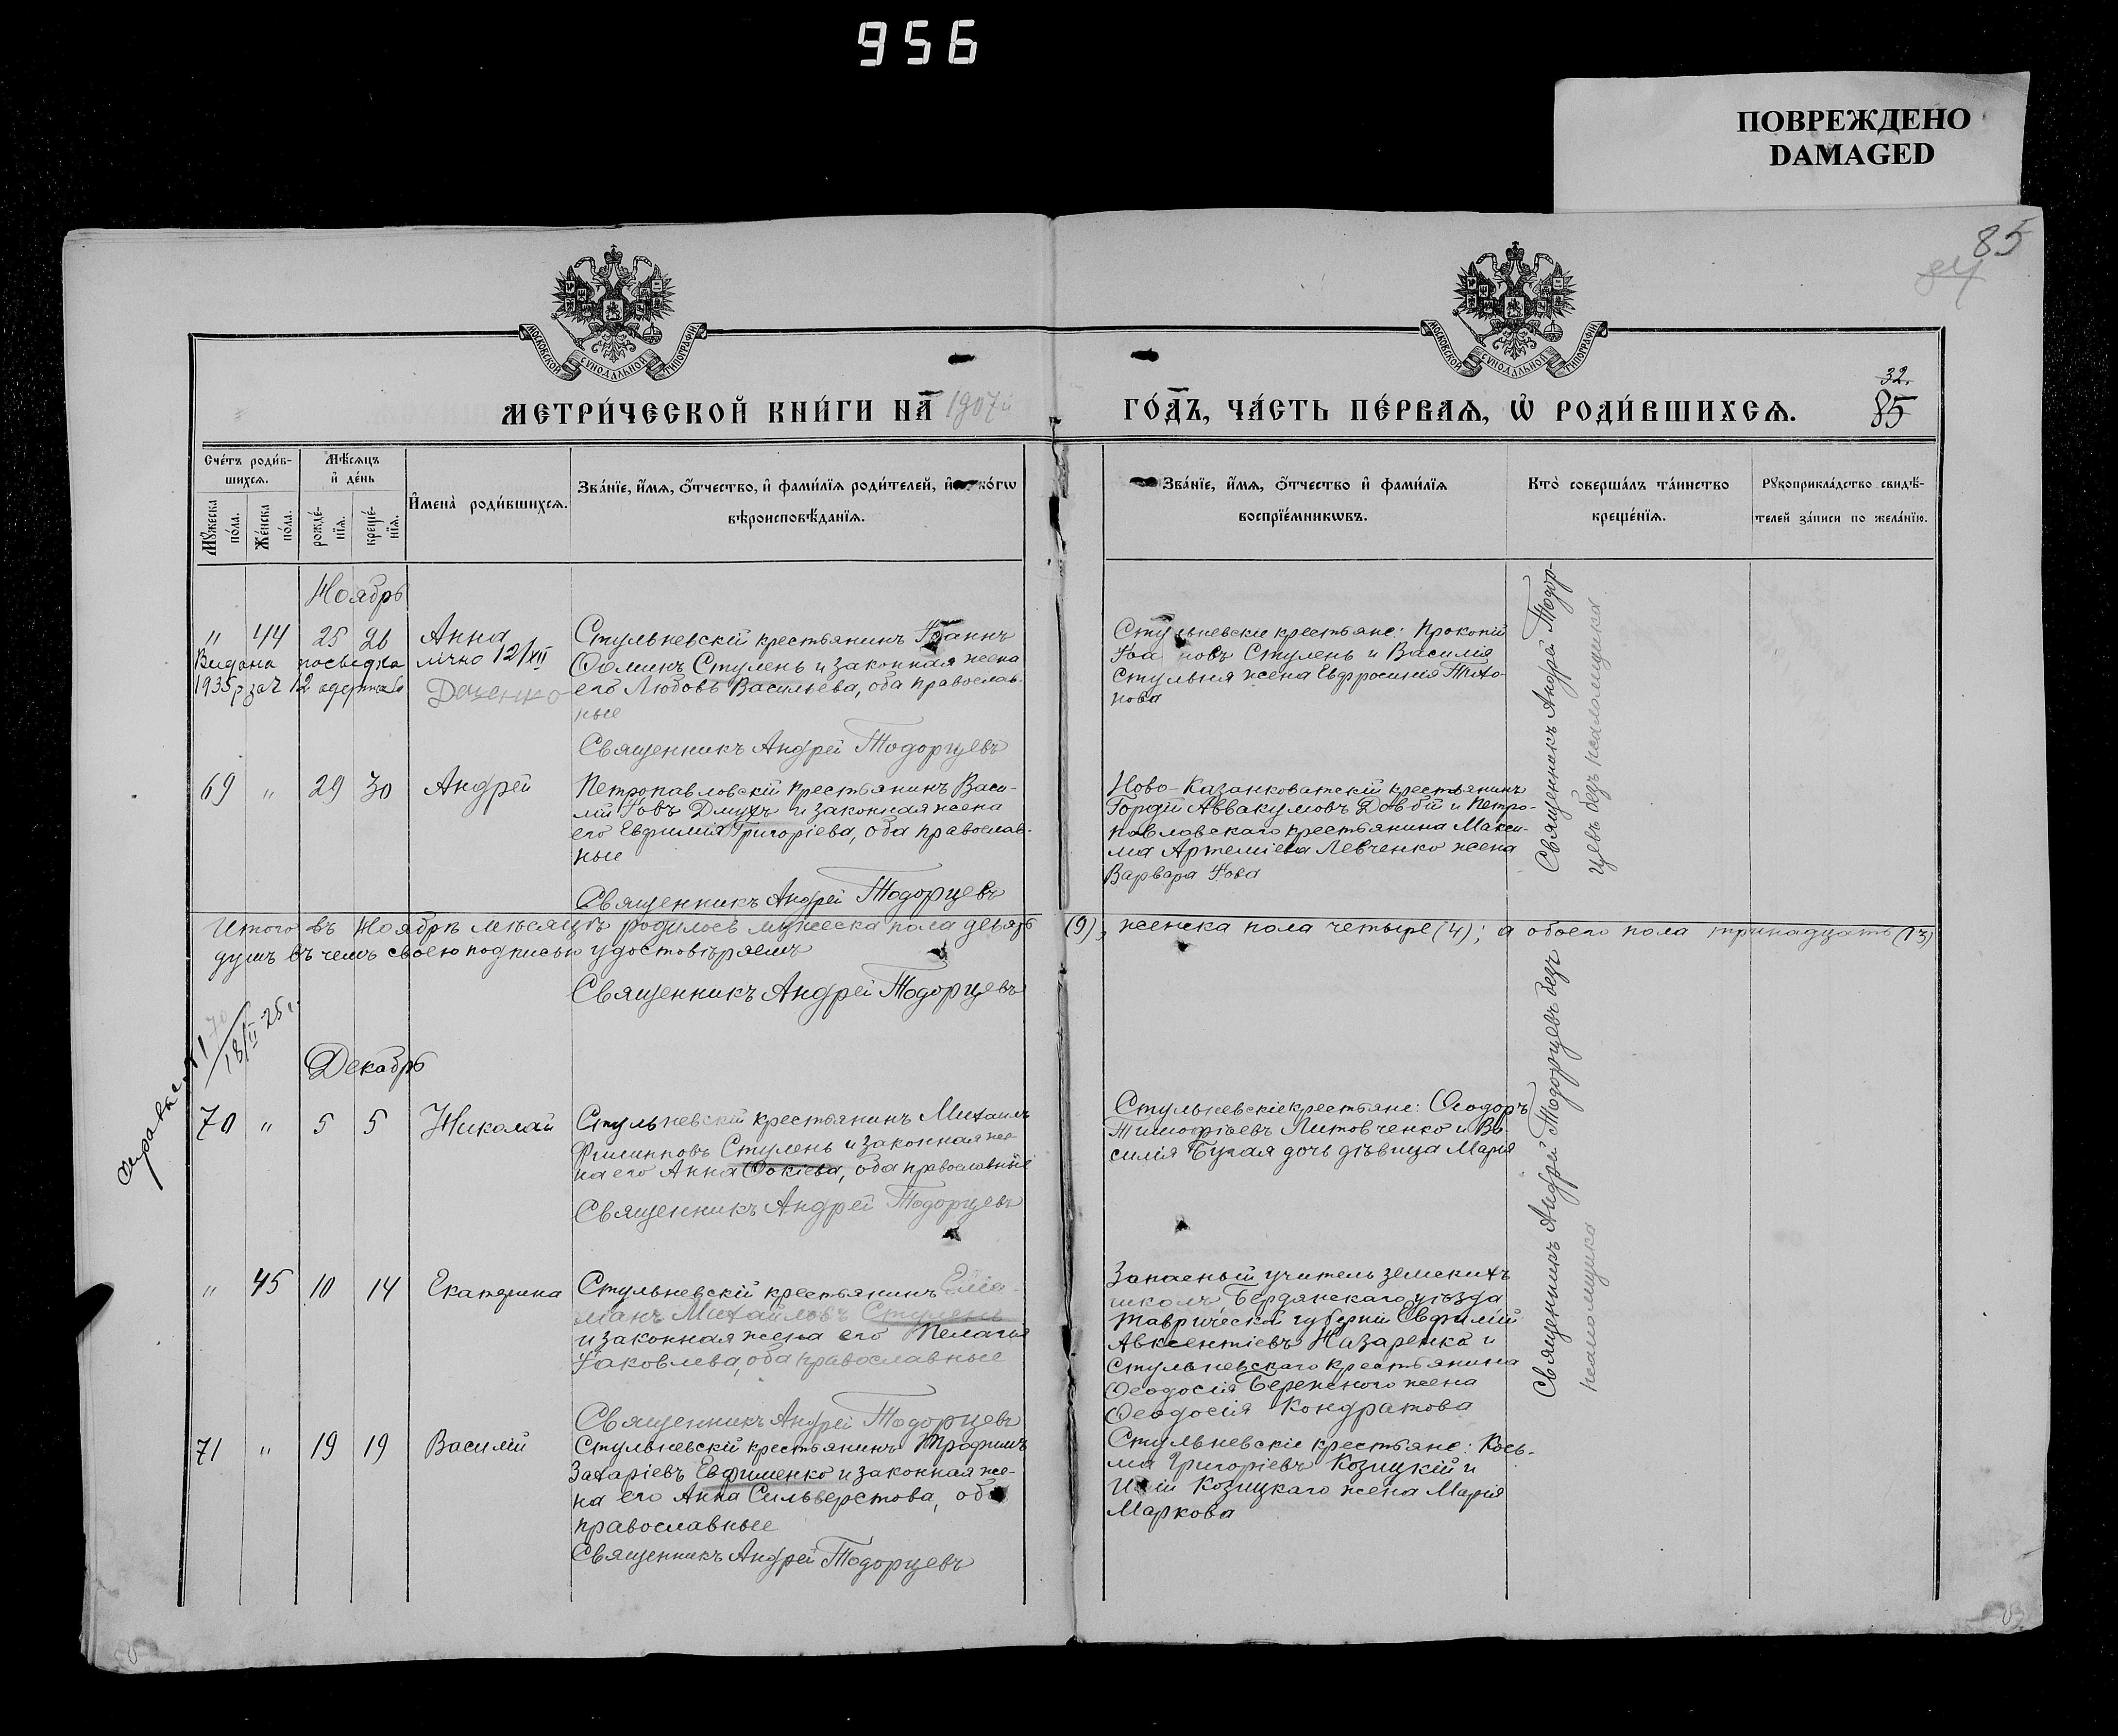 956
ПОВРЕЖДЕНО
DAMAGED
85
84
МОСКОВСКОЙ СѴНОДАЛЬНОЙ ТИПОГРАФІИ
МОСКОВСКОЙ СѴНОДАЛЬНОЙ ТИПОГРАФІИ
МЕТРИ́ЧЕСКОЙ КНИ́ГИ НА 1907й
ГО́ДЪ, ЧА́СТЬ ПЕ́РВАѦ, Ѡ҆ РОДИ́ВШИХСѦ.
32.
85
Сче́тъ роди́в-
шихсѧ.
Мꙋжеска по́ла.
Же́нска по́ла.
Мѣ́сѧцъ
и҆ де́нь
рожде́-
нїѧ.
креще́-
нїѧ.
И҆мена̀ роди́вшихсѧ.
Зва́нїе, и҆́мѧ, ѻ҆́тчество, и҆ фами́лїѧ роди́телей, и҆ ко́гѡ
вѣроисповѣ́данїѧ.
Зва́нїе, и҆́мѧ, ѻ҆́тчество и҆ фами́лїѧ
воспрїе́мникѡвъ.
Кто̀ соверша́лъ та́инство
креще́нїѧ.
Рꙋкоприкла́дство свидѣ́-
телей за́писи по жела́нїю.
Ноябрь
" 44 25 26 Анна
Видана посвідка лічно 12/XII
1935р за ч 12 одержав
Доценко
Стульневскій крестьянинъ Іоаннъ
Ѳоминъ Стулень и законная жена
его Любовь Васильева, оба православ-
ные
Священникъ Андрей Тодорцевъ
Стульневскіе крестьяне: Прокопій
Іоанновъ Стулень и Василія
Стульня жена Евфросинія Тихо-
нова
Священникъ Андрей Тодор-
цевъ безъ псаломщика
69 " 29 30 Андрей
Петропавловскій крестьянинъ Васи-
лій Іовъ Дмухъ и законная жена
его Евфимія Григоріева, оба православ-
ные
Священникъ Андрей Тодорцевъ
Ново-Казанковатскій крестьянинъ
Гордій Аввакумовъ Довбій и Петро-
павловскаго крестьянина Макси-
ма Артеміева Левченко жена
Варвара Іова
Итого въ Ноябрѣ мѣсяцѣ родилось мужеска пола девять (9), женска пола четыре (4); а обоего пола тринадцать (13)
душъ въ чемъ своею подписью удостовѣряемъ
Священникъ Андрей Тодорцевъ
70
18/II 25 г.
Декабрь
70 " 5 5 Николай
Стульневскій крестьянинъ Михаилъ
Филипповъ Стулень и законная же-
на его Анна Фокіева, оба православные
Священникъ Андрей Тодорцевъ
Стульневскіе крестьяне: Ѳеодоръ
Тимофѣевъ Литовченко и Ва-
силія Бугая дочь дѣвица Марія
Священникъ Андрей Тодорцевъ безъ
псаломщика
" 45 10 14 Екатерина
Стульневскій крестьянинъ Еміл-
ліанъ Михайловъ Стулень
и законная жена его Пелагія
Іаковлева, оба православные
Священникъ Андрей Тодорцевъ
Запасный учитель земскихъ
школъ, Бердянскаго уѣзда
Таврической губерніи Евфимій
Авксентіевъ Назаренко и
Стульневскаго крестьянина
Ѳеодосія Бережного жена
Ѳеодосія Кондратова
71 " 19 19 Василій
Стульневскій крестьянинъ Трофимъ
Захаріевъ Евфименко и законная же-
на его Анна Сильверстова, оба
православные
Священникъ Андрей Тодорцевъ
Стульневскіе крестьяне: Кось-
ма Григоріевъ Козицкій и
Козицкаго жена Марія
Маркова